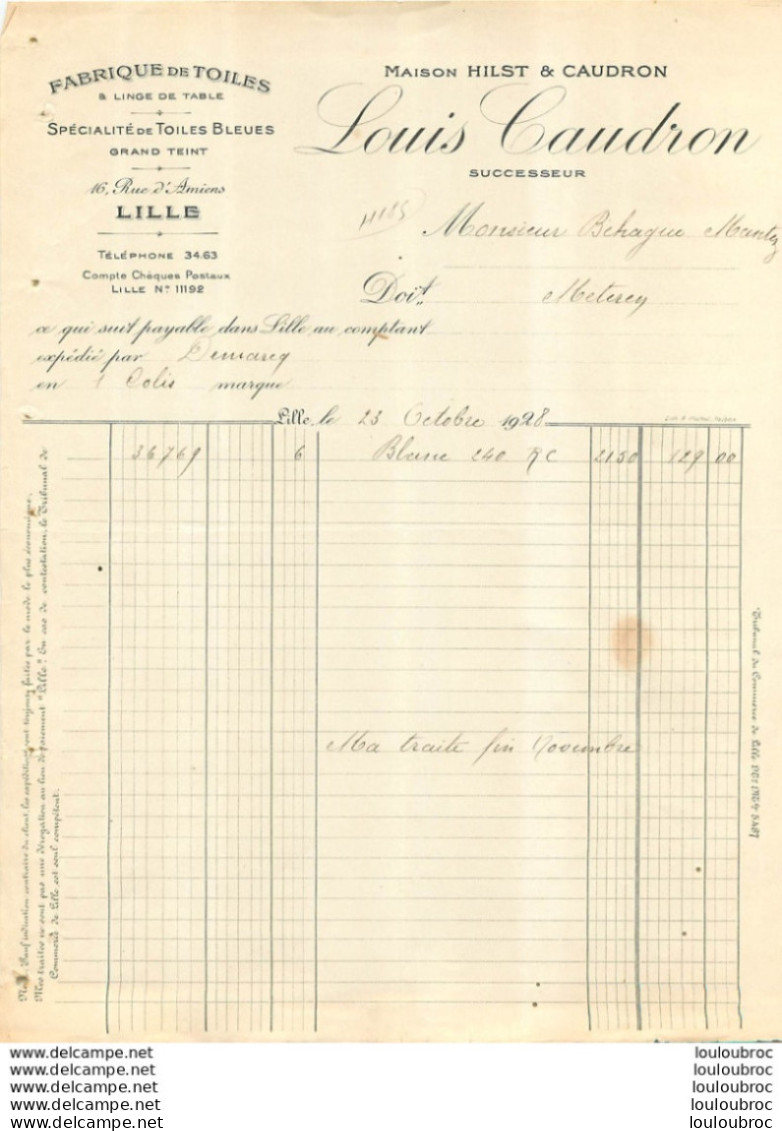 FABRIQUE DE TOILES
& LINGE DE TABLE
SPÉCIALITÉ DE TOILES BLEUES
GRAND TEINT
16, Rue d'Amiens
LILLE
TÉLÉPHONE 34.63
Compte Chèques Postaux
LILLE No 11192
MAISON HILST & CAUDRON
Louis Caudron
SUCCESSEUR
Monsieur Behague
Doit
ce qui suit payable dans Lille au comptant
expédié par
en 1 Colis marque
Lille, le 23 Octobre 1928
36769 6 Blanc 240 RC 2150 129 00
Ma traite fin Novembre
Nota. Sauf indication contraire du client les expéditions sont toujours faites par le mode le plus économique.
Mes traites ne sont pas une dérogation au lieu de paiement "Lille". En cas de contestation, le Tribunal de
Commerce de Lille est seul compétent.
Tribunal du Commerce de Lille
www.delcampe.net
www.delcampe.net
www.delcampe.net
www.delcampe.net
www.delcampe.net
louloubroc
louloubroc
louloubroc
louloubroc
louloubroc